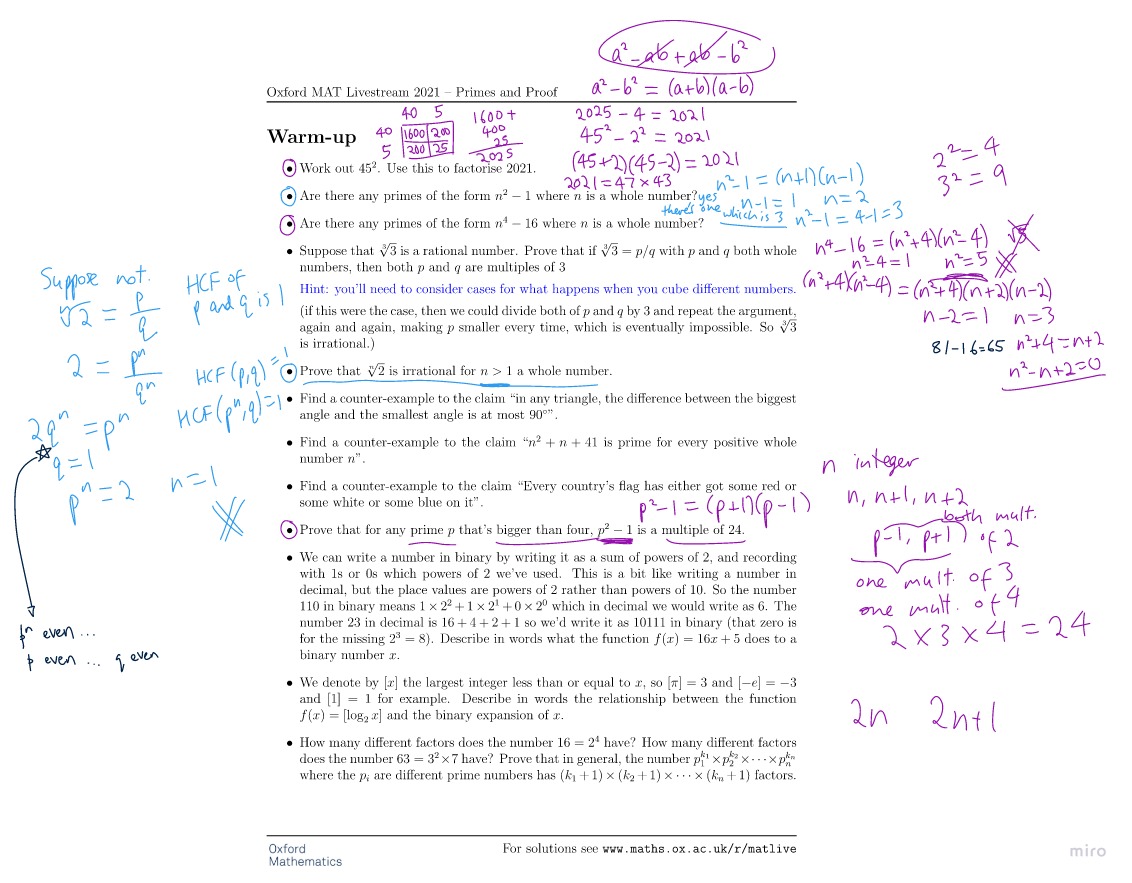 a² - ab + ab - b²
a² - b² = (a+b)(a-b)
Oxford MAT Livestream 2021 – Primes and Proof
40 5
40 1600 200
5 200 25
1600 +
400
25
2025
2025 - 4 = 2021
45² - 2² = 2021
(45+2)(45-2) = 2021
2021 = 47 × 43
2² = 4
3² = 9
Warm-up
• Work out 45². Use this to factorise 2021.
• Are there any primes of the form n² − 1 where n is a whole number?
yes
there's one which is 3
n²-1 = (n+1)(n-1)
n-1 = 1 n=2
n²-1 = 4-1=3
• Are there any primes of the form n⁴ − 16 where n is a whole number?
n⁴-16 = (n²+4)(n²-4)
n²-4=1 n²=5
√5
(n²+4)(n²-4) = (n²+4)(n+2)(n-2)
n-2=1 n=3
81-16=65 n²+4=n+2
n²-n+2=0
• Suppose that ∛3 is a rational number. Prove that if ∛3 = p/q with p and q both whole
numbers, then both p and q are multiples of 3
Hint: you'll need to consider cases for what happens when you cube different numbers.
(if this were the case, then we could divide both of p and q by 3 and repeat the argument,
again and again, making p smaller every time, which is eventually impossible. So ∛3
is irrational.)
• Prove that ⁿ√2 is irrational for n > 1 a whole number.
Suppose not.
ⁿ√2 = p/q
HCF of
p and q is 1
2 = pⁿ/qⁿ
HCF(p,q)=1
HCF(pⁿ,q)=1
2qⁿ = pⁿ
q=1
pⁿ=2 n=1
pⁿ even ...
p even ... q even
• Find a counter-example to the claim “in any triangle, the difference between the biggest
angle and the smallest angle is at most 90°”.
• Find a counter-example to the claim “n² + n + 41 is prime for every positive whole
number n”.
• Find a counter-example to the claim “Every country's flag has either got some red or
some white or some blue on it”.
p²-1 = (p+1)(p-1)
• Prove that for any prime p that's bigger than four, p² − 1 is a multiple of 24.
n integer
n, n+1, n+2
both mult.
p-1, p+1 of 2
one mult. of 3
one mult. of 4
2 × 3 × 4 = 24
2n 2n+1
• We can write a number in binary by writing it as a sum of powers of 2, and recording
with 1s or 0s which powers of 2 we've used. This is a bit like writing a number in
decimal, but the place values are powers of 2 rather than powers of 10. So the number
110 in binary means 1 × 2² + 1 × 2¹ + 0 × 2⁰ which in decimal we would write as 6. The
number 23 in decimal is 16 + 4 + 2 + 1 so we'd write it as 10111 in binary (that zero is
for the missing 2³ = 8). Describe in words what the function f(x) = 16x + 5 does to a
binary number x.
• We denote by [x] the largest integer less than or equal to x, so [π] = 3 and [−e] = −3
and [1] = 1 for example. Describe in words the relationship between the function
f(x) = [log₂ x] and the binary expansion of x.
• How many different factors does the number 16 = 2⁴ have? How many different factors
does the number 63 = 3² × 7 have? Prove that in general, the number p₁^k₁ × p₂^k₂ × · · · × pₙ^kₙ
where the pᵢ are different prime numbers has (k₁ + 1) × (k₂ + 1) × · · · × (kₙ + 1) factors.
Oxford
Mathematics
For solutions see www.maths.ox.ac.uk/r/matlive
miro